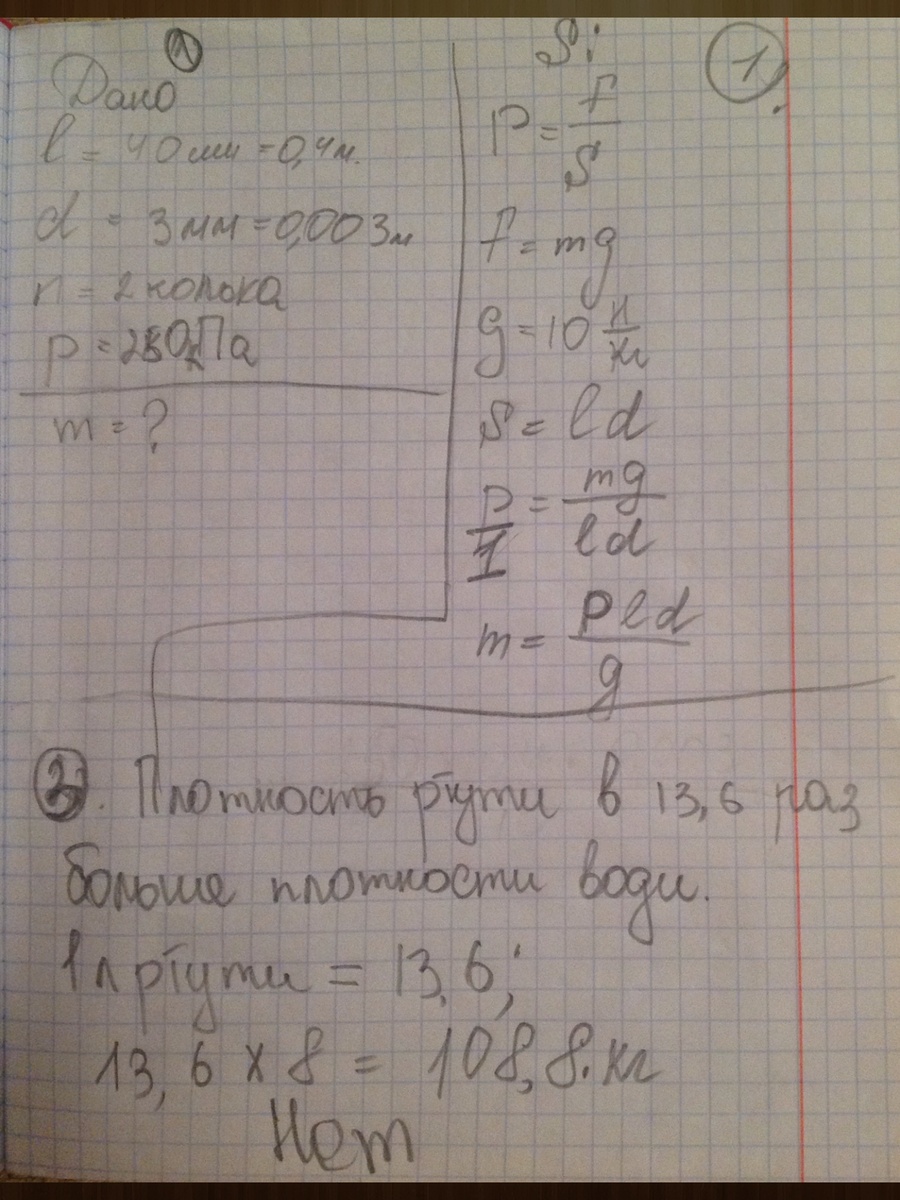 1
Дано
l = 40 мм = 0,4 м.
d = 3 мм = 0,003 м
n = 2 колька
p = Па
m = ?
Si
1.
P = f/S
f = mg
g = 10 н/кг
S = ld
p/1 = mg/ld
m = pld/g
3. Плотность ртути в 13,6 раз
больше плотности води.
1л ртути = 13,6;
13,6 x 8 = 108,8.кг
Нет